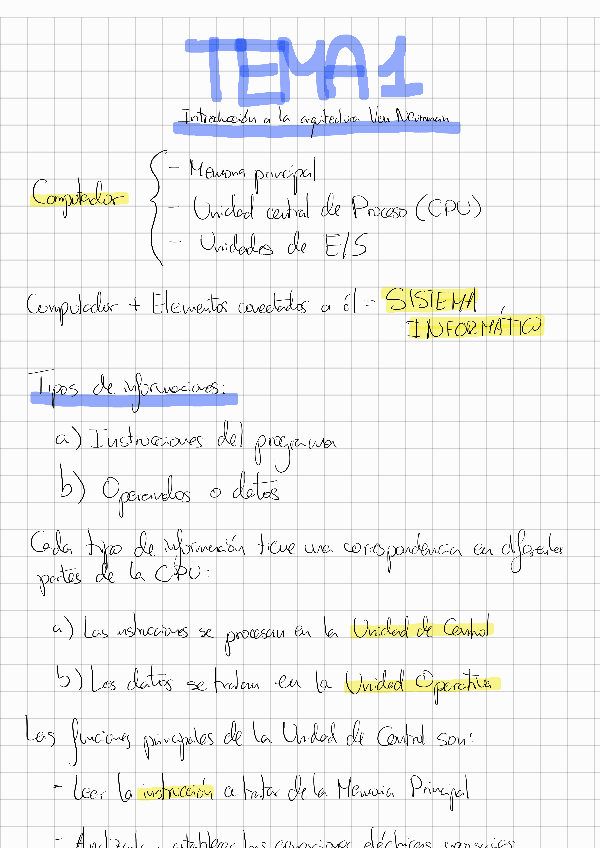 TEMA 1
Introducción a la arquitectura Von Neumann
Computador
- Memoria principal
- Unidad central de Proceso (CPU)
- Unidades de E/S
Computador + Elementos conectados a él = SISTEMA
INFORMÁTICO
Tipos de informaciones:
a) Instrucciones del programa
b) Operandos o datos
Cada tipo de información tiene una correspondencia en diferentes
partes de la CPU:
a) Las instrucciones se procesan en la Unidad de Control
b) Los datos se tratan en la Unidad Operativa
Las funciones principales de la Unidad de Control son:
- Leer la instrucción a tratar de la Memoria Principal
- Analizarla, establecer las conexiones eléctricas